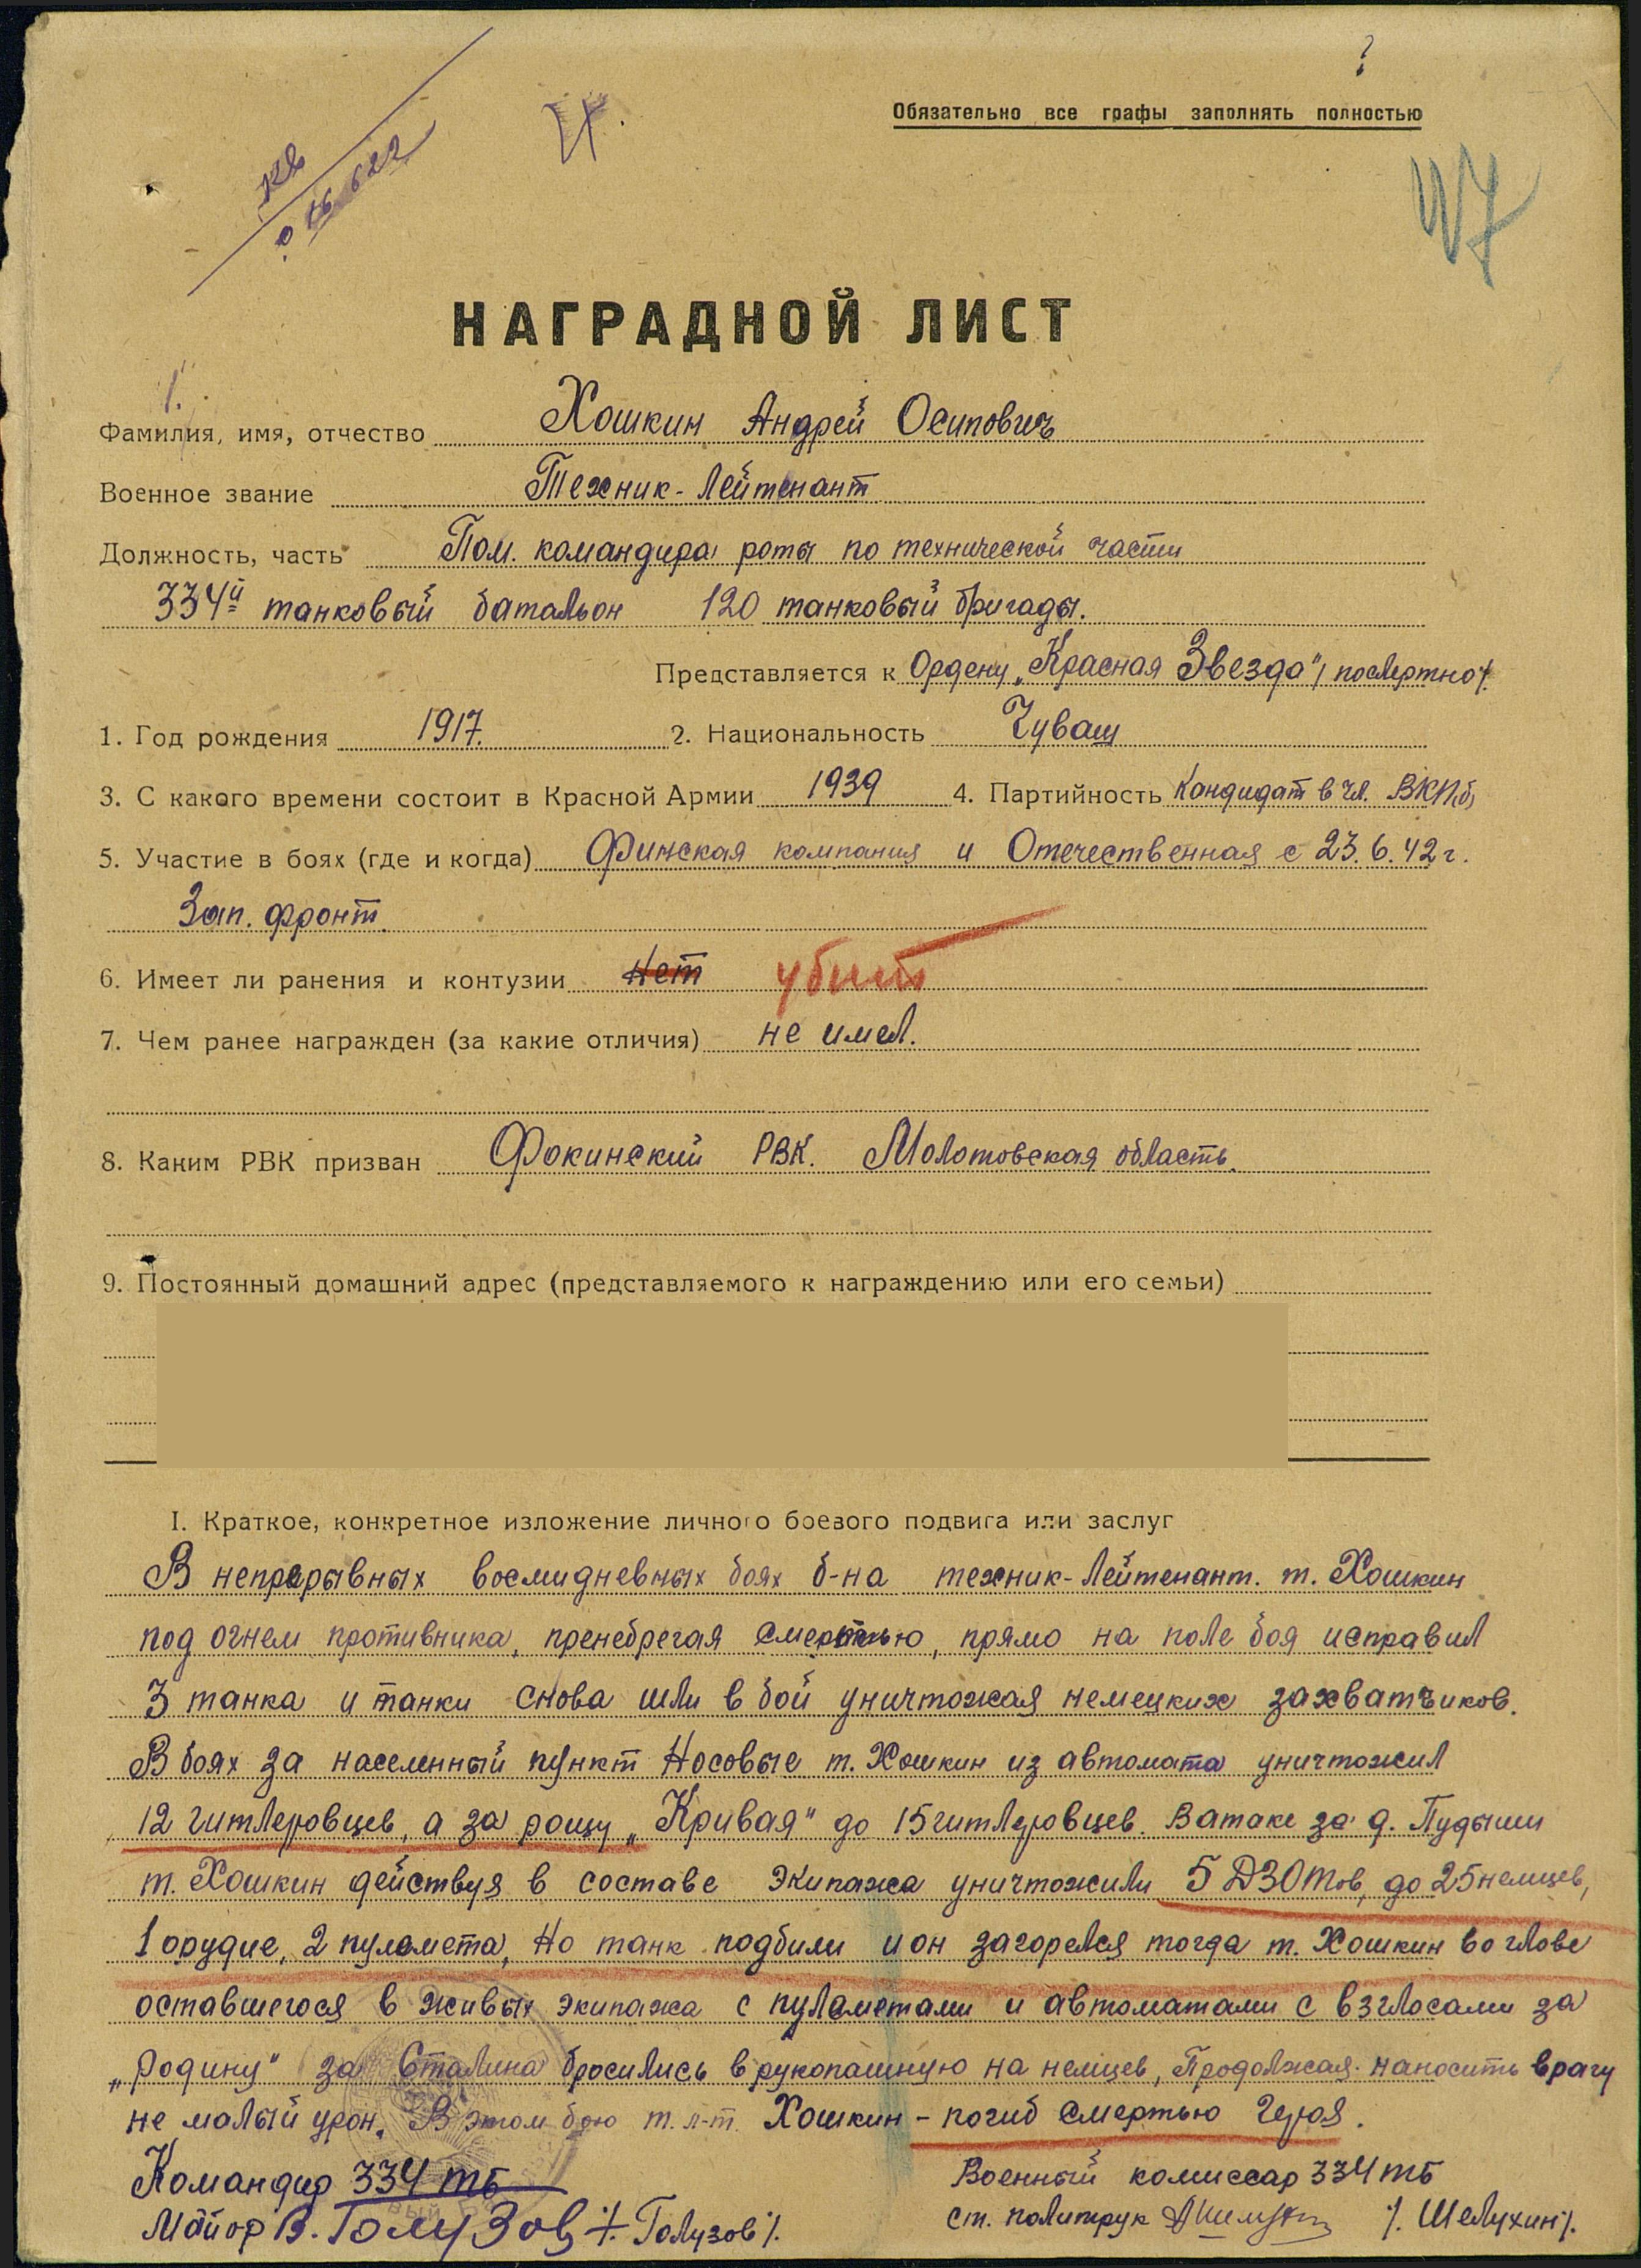 ?
Обязательно все графы заполнять полностью
НАГРАДНОЙ ЛИСТ
1.
Фамилия, имя, отчество Хошкин Андрей Осипович
Военное звание Техник-Лейтенант
Должность, часть Пом. командира роты по технической части
334й танковый батальон 120 танковый бригады.
Представляется к Ордену „Красная Звезда" /посмертно/.
1. Год рождения 1917. 2. Национальность Чуваш
3. С какого времени состоит в Красной Армии 1939 4. Партийность Кандидат в чл. ВКПб)
5. Участие в боях (где и когда) Финская компания и Отечественная с 23.6.42 г.
Зап. фронт.
6. Имеет ли ранения и контузии нет убит
7. Чем ранее награжден (за какие отличия) не имел.
8. Каким РВК призван Фокинский РВК. Молотовская область.
9. Постоянный домашний адрес (представляемого к награждению или его семьи)
I. Краткое, конкретное изложение личного боевого подвига или заслуг
В непрерывных восмидневных боях б-на техник-Лейтенант. т. Хошкин
под огнем противника, пренебрегая смертью, прямо на поле боя исправил
3 танка и танки снова шли в бой уничтожая немецких захватчиков.
В боях за населенный пункт Носовые т. Хошкин из автомата уничтожил
12 гитлеровцев, а за рощу „Кривая" до 15 гитлеровцев. В атаке за д. Пудыши
т. Хошкин действуя в составе экипажа уничтожили 5 ДЗОТов, до 25 немцев,
1 орудие, 2 пулемета, Но танк подбили и он загорелся тогда т. Хошкин во главе
оставшегося в живых экипажа с пулеметами и автоматами с взгласами за
„Родину" за Сталина бросились в рукопашную на немцев, Продолжая наносить врагу
не малый урон. В этом бою т. л-т. Хошкин - погиб смертью героя.
Командир 334 тб Военный комиссар 334 тб
Майор В. Голузов /. Голузов/. ст. политрук /. Шелухин/.